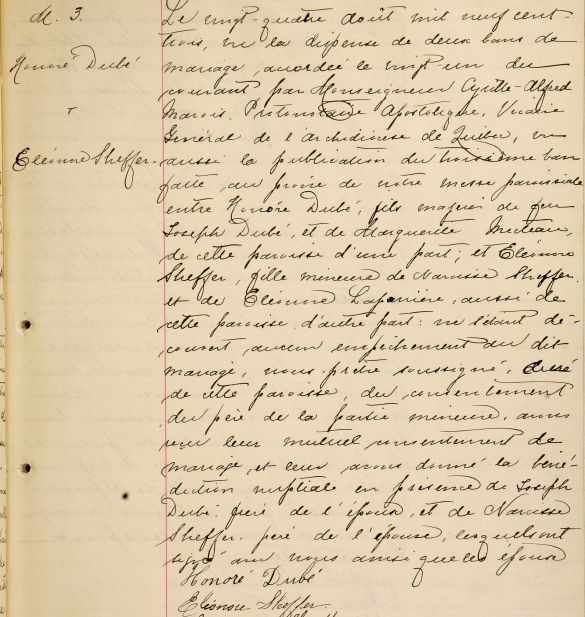 M. 3.
Honoré Dubé
&
Eléonore Sheffer.
Le vingt-quatre août mil neuf cent-
trois, vu la dispense de deux bans de
mariage, accordée le vingt-un du
courant par Monseigneur Cyrille-Alfred
Marois, Protonotaire Apostolique, Vicaire
Général de l'archidiocèse de Québec, vu
aussi la publication du troisième ban
faite au prône de notre messe paroissiale
entre Honoré Dubé, fils majeur de feu
Joseph Dubé, et de Marguerite
de cette paroisse d'une part; et Eléonore
Sheffer, fille mineure de Narcisse Sheffer,
et de Eléonore Laparrière, aussi de
cette paroisse, d'autre part: ne s'étant dé-
couvert aucun empêchement au dit
mariage, nous, prêtre soussigné, curé
de cette paroisse, du consentement
du père de la partie mineure, avons
reçu leur mutuel consentement de
mariage, et leur avons donné la béné-
diction nuptiale en présence de Joseph
Dubé, frère de l'époux, et de Narcisse
Sheffer, père de l'épouse, lesquels ont
signé avec nous ainsi que les époux
Honoré Dubé
Eléonore Sheffer